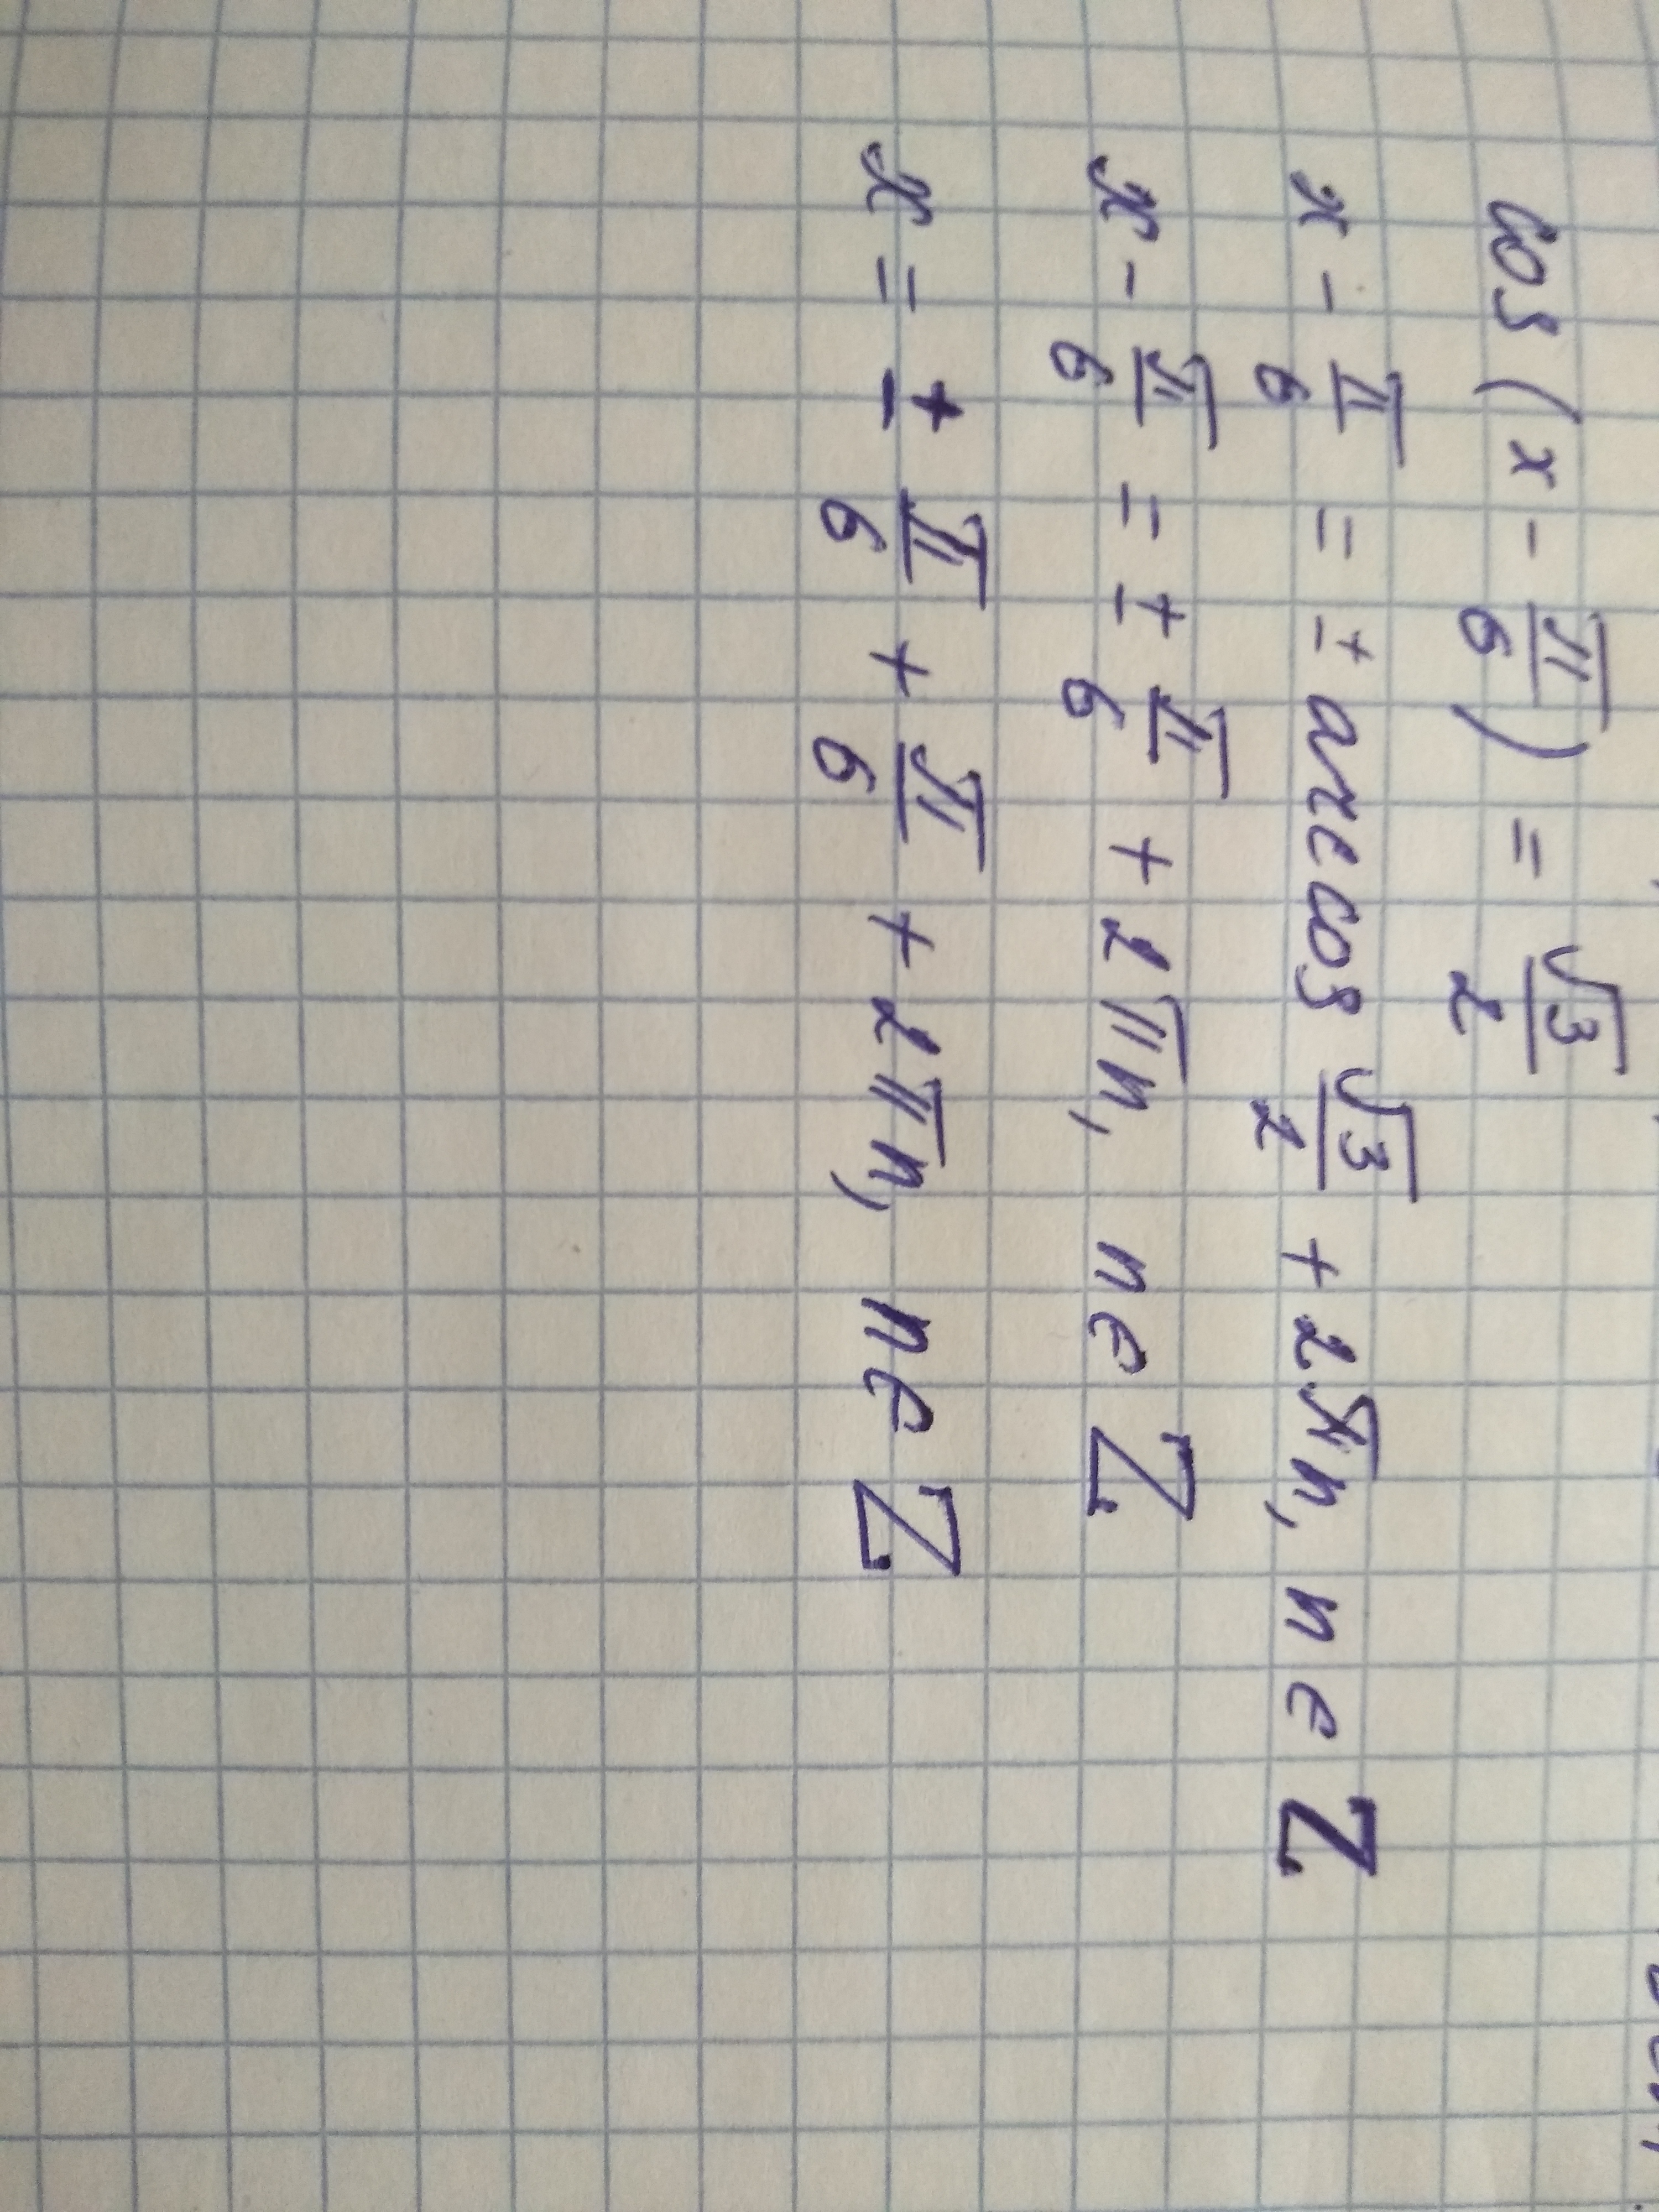 cos (x - π/6) = √3/2
x - π/6 = ± arccos √3/2 + 2πn, n ∈ Z
x - π/6 = ± π/6 + 2πn, n ∈ Z
x = ± π/6 + π/6 + 2πn, n ∈ Z